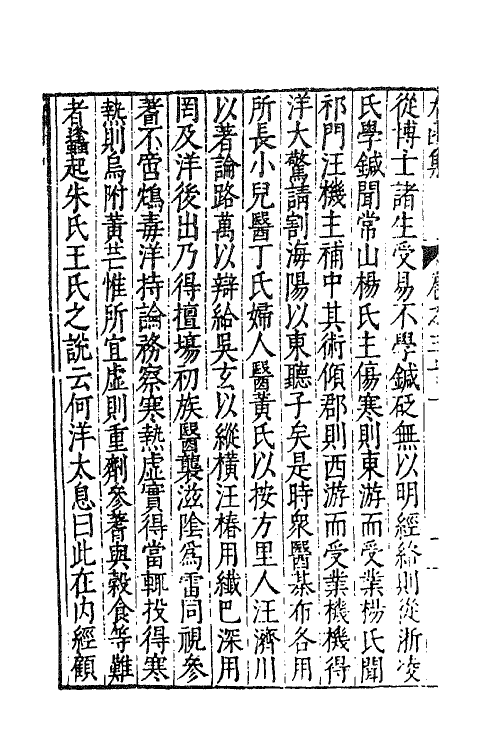 從博士諸生受易不學鍼砭無以明經絡則從浙凌
氏學鍼聞常山楊氏主傷寒則東游而受業楊氏聞
祁門汪機主補中其術傾郡則西游而受業機機得
洋大驚請割海陽以東聽子矣是時衆醫棊布各用
所長小兒醫丁氏婦人醫黃氏以按方里人汪濟川
以著論路萬以辯給吳玄以縱橫汪椿用纖巴深用
罔及洋後出乃得擅場初族醫襲滋陰爲雷同視參
蓍不啻鴆毒洋持論務察寒熱虛實得當輒投得寒
熱則烏附黃芩惟所宜虛則重劑參蓍與穀食等難
者蠭起朱氏王氏之說云何洋太息曰此在內經顧